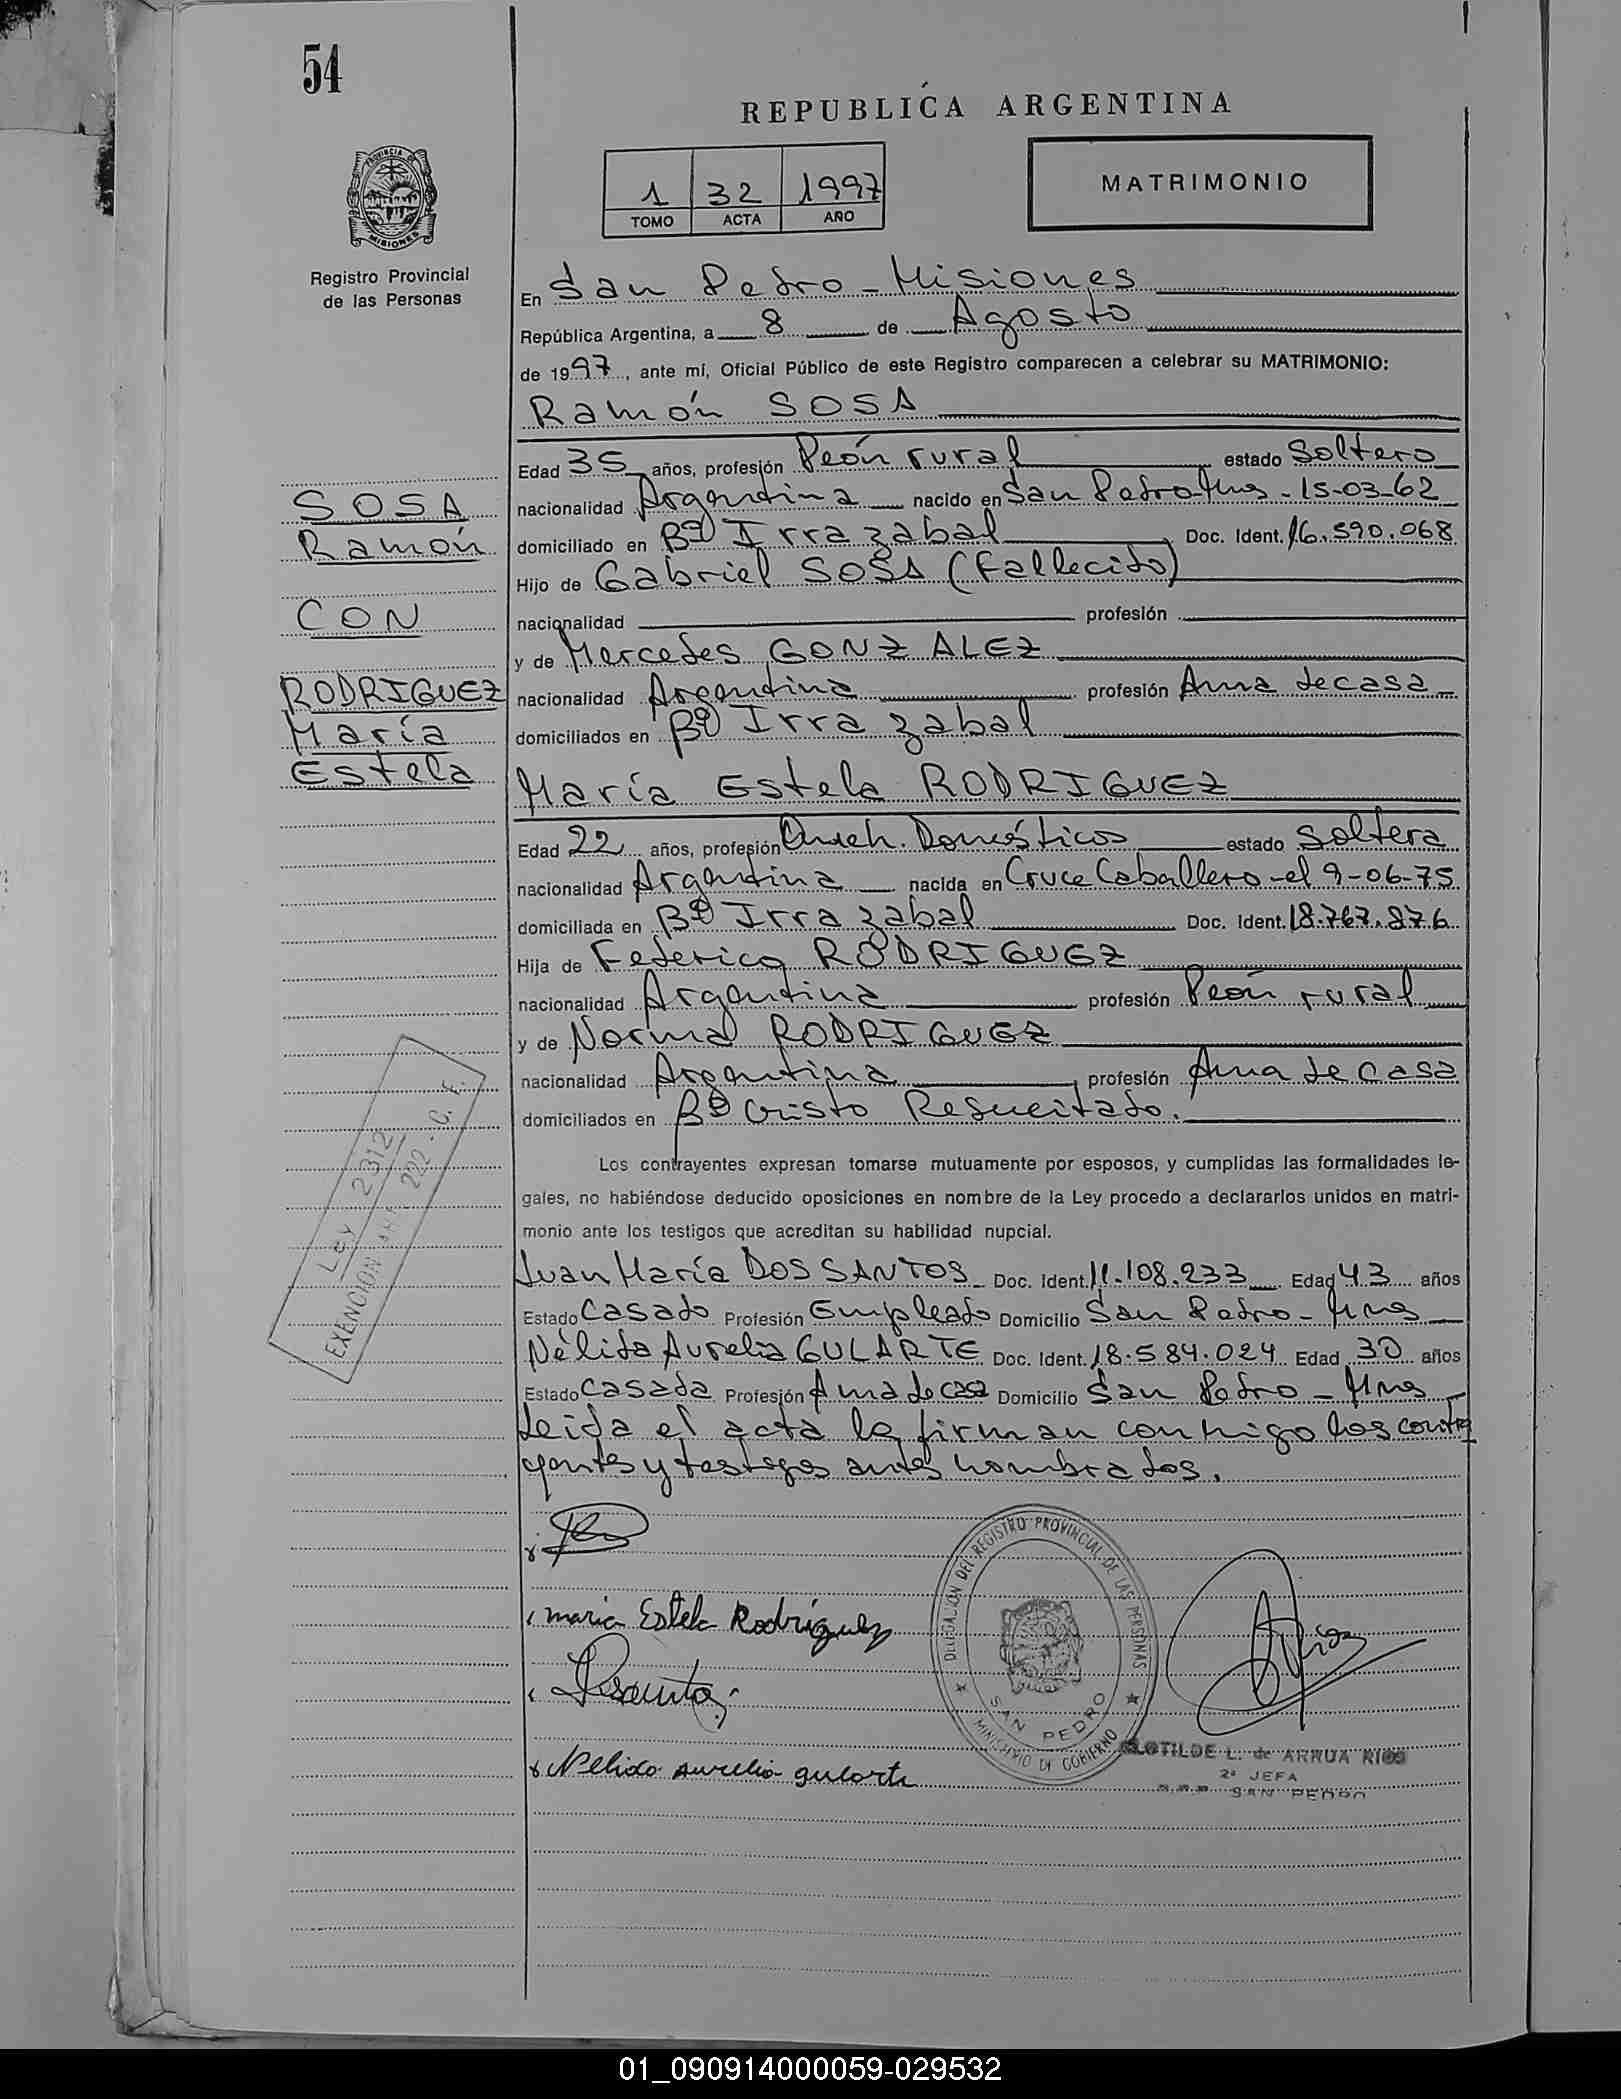 54
REPUBLICA ARGENTINA
1 32 1997
TOMO ACTA AÑO
MATRIMONIO
PROVINCIA DE MISIONES
Registro Provincial
de las Personas
En San Pedro - Misiones
República Argentina, a 8 de Agosto
de 1997, ante mí, Oficial Público de este Registro comparecen a celebrar su MATRIMONIO:
Ramón SOSA
Edad 35 años, profesión Peón rural estado Soltero
nacionalidad Argentina nacido en San Pedro Mnes - 15-03-62
domiciliado en Bº Irrazabal Doc. Ident. 16.590.068
Hijo de Gabriel SOSA (Fallecido)
nacionalidad profesión
y de Mercedes GONZALEZ
nacionalidad Argentina profesión Ama de casa
domiciliados en Bº Irrazabal
SOSA
Ramón
CON
RODRIGUEZ
María
Estela
María Estela RODRIGUEZ
Edad 22 años, profesión Queh. Domésticos estado Soltera
nacionalidad Argentina nacida en Cruce Caballero - el 9-06-75
domiciliada en Bº Irrazabal Doc. Ident. 18.767.876
Hija de Federico RODRIGUEZ
nacionalidad Argentina profesión Peón rural
y de Norma RODRIGUEZ
nacionalidad Argentina profesión Ama de casa
domiciliados en Bº Cristo Resucitado.
Ley 2312
EXENCION Art 222 - C. F.
Los contrayentes expresan tomarse mutuamente por esposos, y cumplidas las formalidades le-
gales, no habiéndose deducido oposiciones en nombre de la Ley procedo a declararlos unidos en matri-
monio ante los testigos que acreditan su habilidad nupcial.
Juan María DOS SANTOS Doc. Ident. 11.108.233 Edad 43 años
Estado Casado Profesión Empleado Domicilio San Pedro - Mnes
Nélida Aurelia GULARTE Doc. Ident. 18.584.024 Edad 30 años
Estado Casada Profesión Ama de casa Domicilio San Pedro - Mnes
Leida el acta la firman conmigo los contra
yentes y testigos antes nombrados.
maria Estela Rodriguez
Nelida aurelia gularte
DELEGACIÓN DEL REGISTRO PROVINCIAL DE LAS PERSONAS
SAN PEDRO
MINISTERIO DE GOBIERNO
CLOTILDE L. de ARRUA RIOS
2ª JEFA
SAN PEDRO
01_090914000059-029532